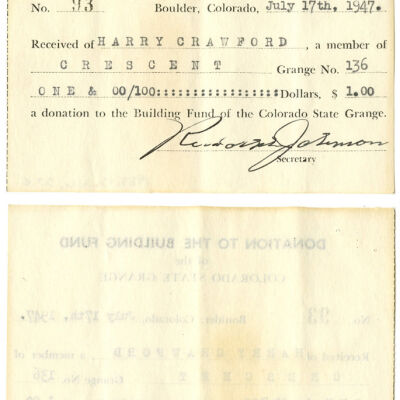 No. 93 Boulder, Colorado, July 17th, 1947.
Received of HARRY CRAWFORD , a member of
CRESCENT Grange No. 136
ONE & 00/100:::::::::::::::::Dollars, $ 1.00
a donation to the Building Fund of the Colorado State Grange.
Rudolph Johnson
Secretary
DONATION TO THE BUILDING FUND
of the
COLORADO STATE GRANGE
No. 93 Boulder, Colorado, July 17th, 1947.
Received of HARRY CRAWFORD , a member of
CRESCENT Grange No. 136